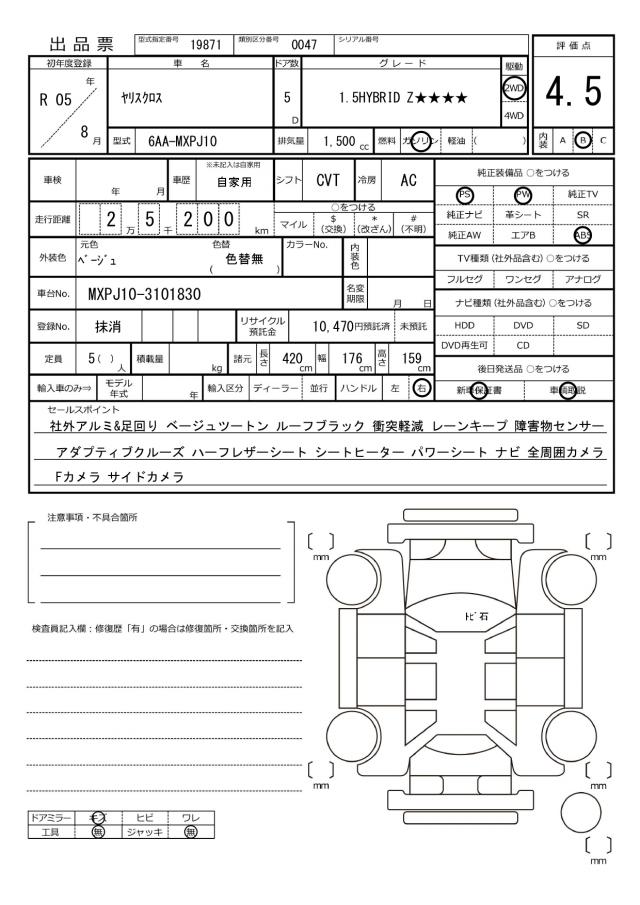 出品票 型式指定番号 19871 類別区分番号 0047 シリアル番号
評価点
4.5
内装 A B C
初年度登録 車名 ドア数 グレード 駆動
R 05 年 8 月
ヤリスクロス 5 D 1.5HYBRID Z★★★★ 2WD
4WD
型式 6AA-MXPJ10 排気量 1,500 cc 燃料 ガソリン 軽油 ( )
車検 年 月 車歴 ※未記入は自家用 自家用 シフト CVT 冷房 AC
走行距離 2 万 5 千 2 0 0 km
○をつける
マイル $ (交換) * (改ざん) # (不明)
外装色 元色 ベージュ 色替 ( 色替無 ) カラーNo. 内装色
車台No. MXPJ10-3101830 名変期限 月 日
登録No. 抹消 リサイクル預託金 10,470円預託済 未預託
定員 5( ) 人 積載量 kg 諸元 長さ 420 cm 幅 176 cm 高さ 159 cm
輸入車のみ⇒ モデル年式 年 輸入区分 ディーラー 並行 ハンドル 左 右
純正装備品 ○をつける
PS PW 純正TV
純正ナビ 革シート SR
純正AW エアB ABS
TV種類(社外品含む) ○をつける
フルセグ ワンセグ アナログ
ナビ種類(社外品含む) ○をつける
HDD DVD SD
DVD再生可 CD
後日発送品 ○をつける
新車保証書 車輌取説
セールスポイント
社外アルミ&足回り ベージュツートン ルーフブラック 衝突軽減 レーンキープ 障害物センサー
アダプティブクルーズ ハーフレザーシート シートヒーター パワーシート ナビ 全周囲カメラ
Fカメラ サイドカメラ
注意事項・不具合箇所
検査員記入欄：修復歴「有」の場合は修復箇所・交換箇所を記入
[ ] mm
[ ] mm
トビ石
[ ] mm
[ ] mm
[ ] mm
ドアミラー キズ ヒビ ワレ
工具 無 ジャッキ 無